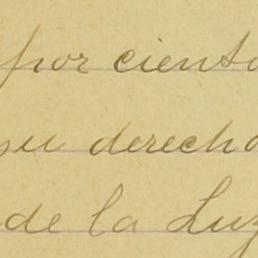 por ciento
su derecho
de la Luz